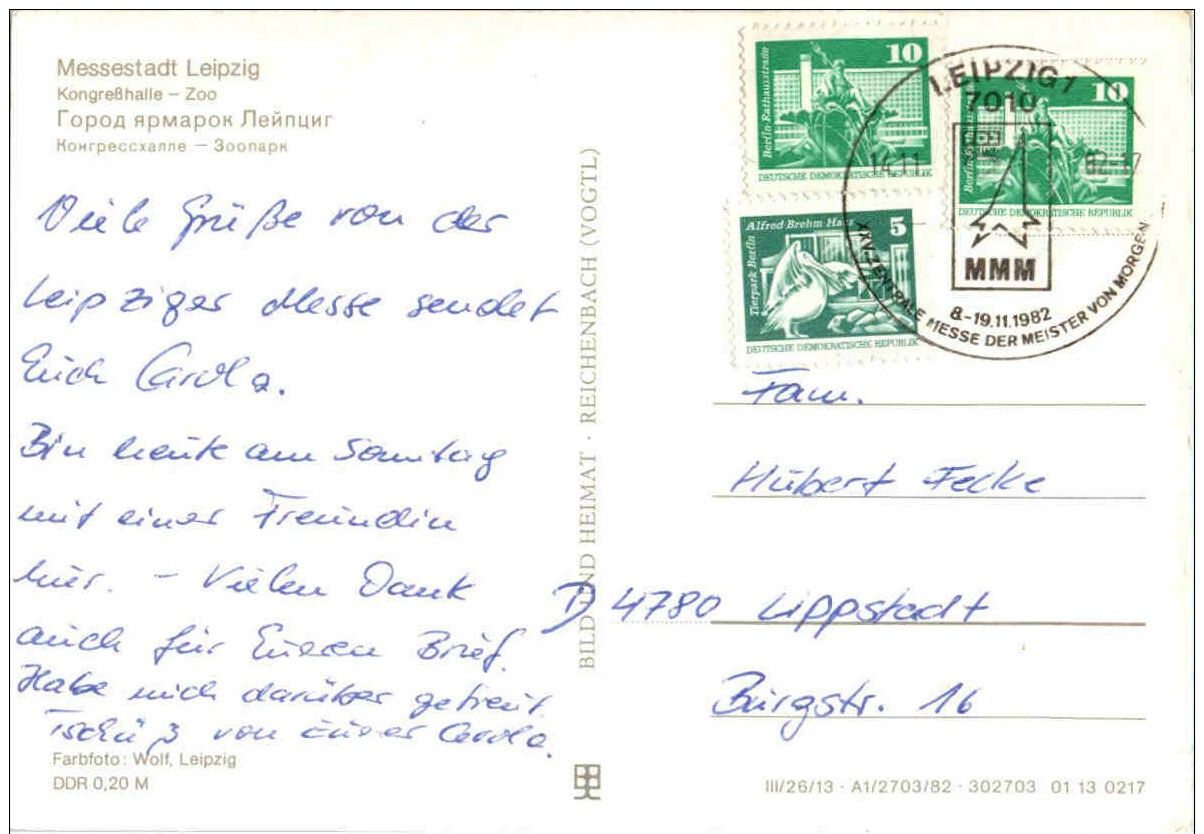 Messestadt Leipzig
Kongreßhalle – Zoo
Город ярмарок Лейпциг
Конгрессхалле — Зоопарк
Viele Grüße von der
Leipziger Messe sendet
Euch Carola.
Bin heute am Sonntag
mit einer Freundin
hier. – Vielen Dank
auch für Eueren Brief.
Habe mich darüber gefreut.
Tschüß von Eurer Carola.
Farbfoto: Wolf, Leipzig
DDR 0,20 M
BILD UND HEIMAT · REICHENBACH (VOGTL)
10
Berlin Rathausstraße
DEUTSCHE DEMOKRATISCHE REPUBLIK
10
Berlin
DEUTSCHE DEMOKRATISCHE REPUBLIK
Alfred Brehm Haus
5
Tierpark Berlin
DEUTSCHE DEMOKRATISCHE REPUBLIK
LEIPZIG 1
7010
14.11. 82-17
MMM
8.-19.11.1982
XXV. ZENTRALE MESSE DER MEISTER VON MORGEN
Fam.
Hubert Fecke
D 4780 Lippstadt
Burgstr. 16
III/26/13 · A1/2703/82 · 302703 01 13 0217